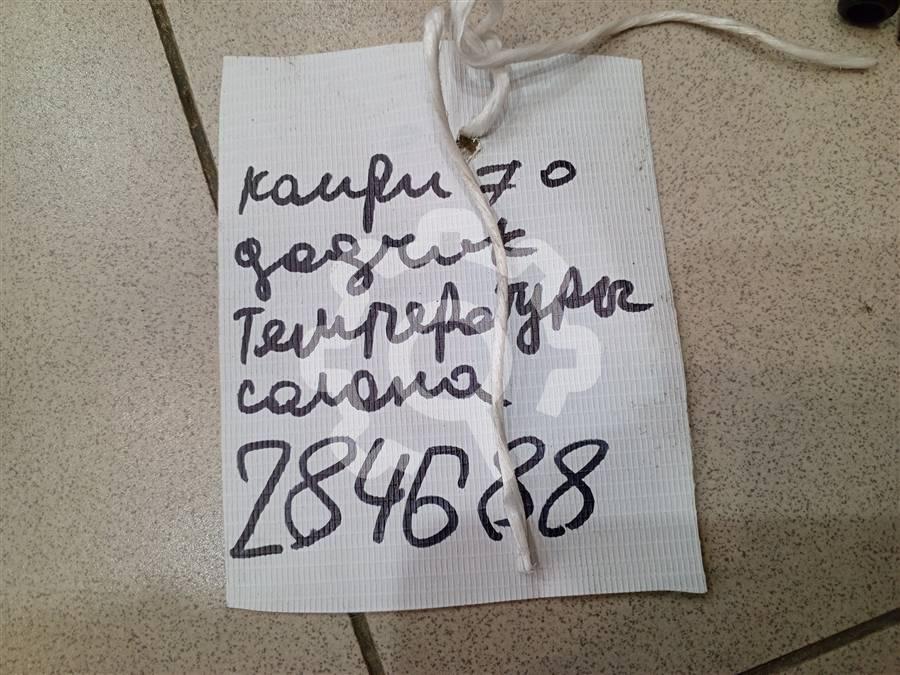 камри 70
дадчик
температуры
салона
284688